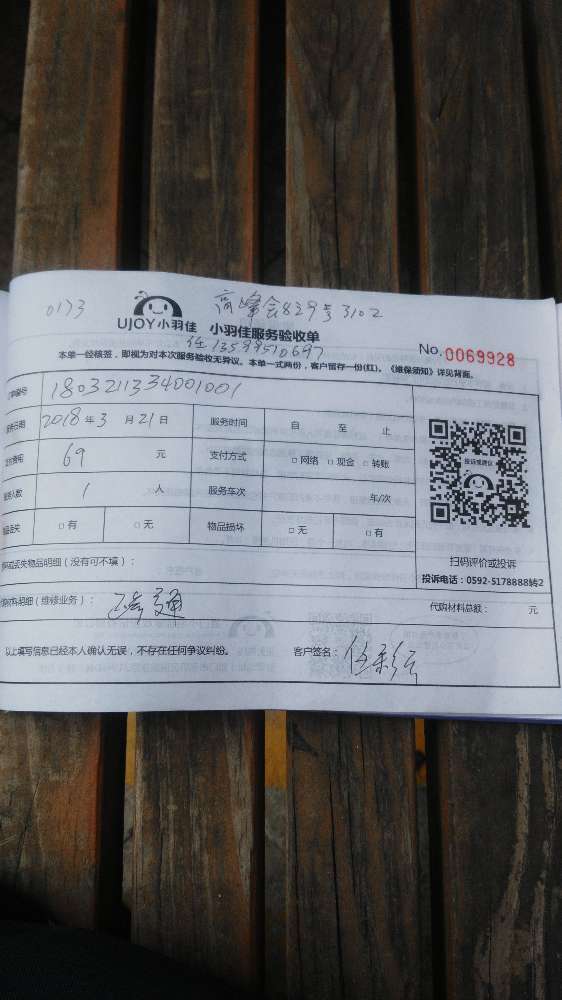 0173 高峰会829号3102
UJOY小羽佳 小羽佳服务验收单
任13599510697
No.0069928
本单一经核签，即视为对本次服务验收无异议。本单一式两份，客户留存一份(红)。《维保须知》详见背面。
单编号 1803211334001001
务日期 2018年3月21日 服务时间 自 至 止
69 元 支付方式 □网络 □现金 □转账
人数 1 人 服务车次 年/次
品丢失 □有 □无 物品损坏 □无 □有
投诉或建议
扫码评价或投诉
投诉电话：0592-5178888转2
丢失物品明细（没有可不填）：
材料明细（维修业务）： 通 代购材料总额： 元
以上填写信息已经本人确认无误，不存在任何争议纠纷。 客户签名：任彩云